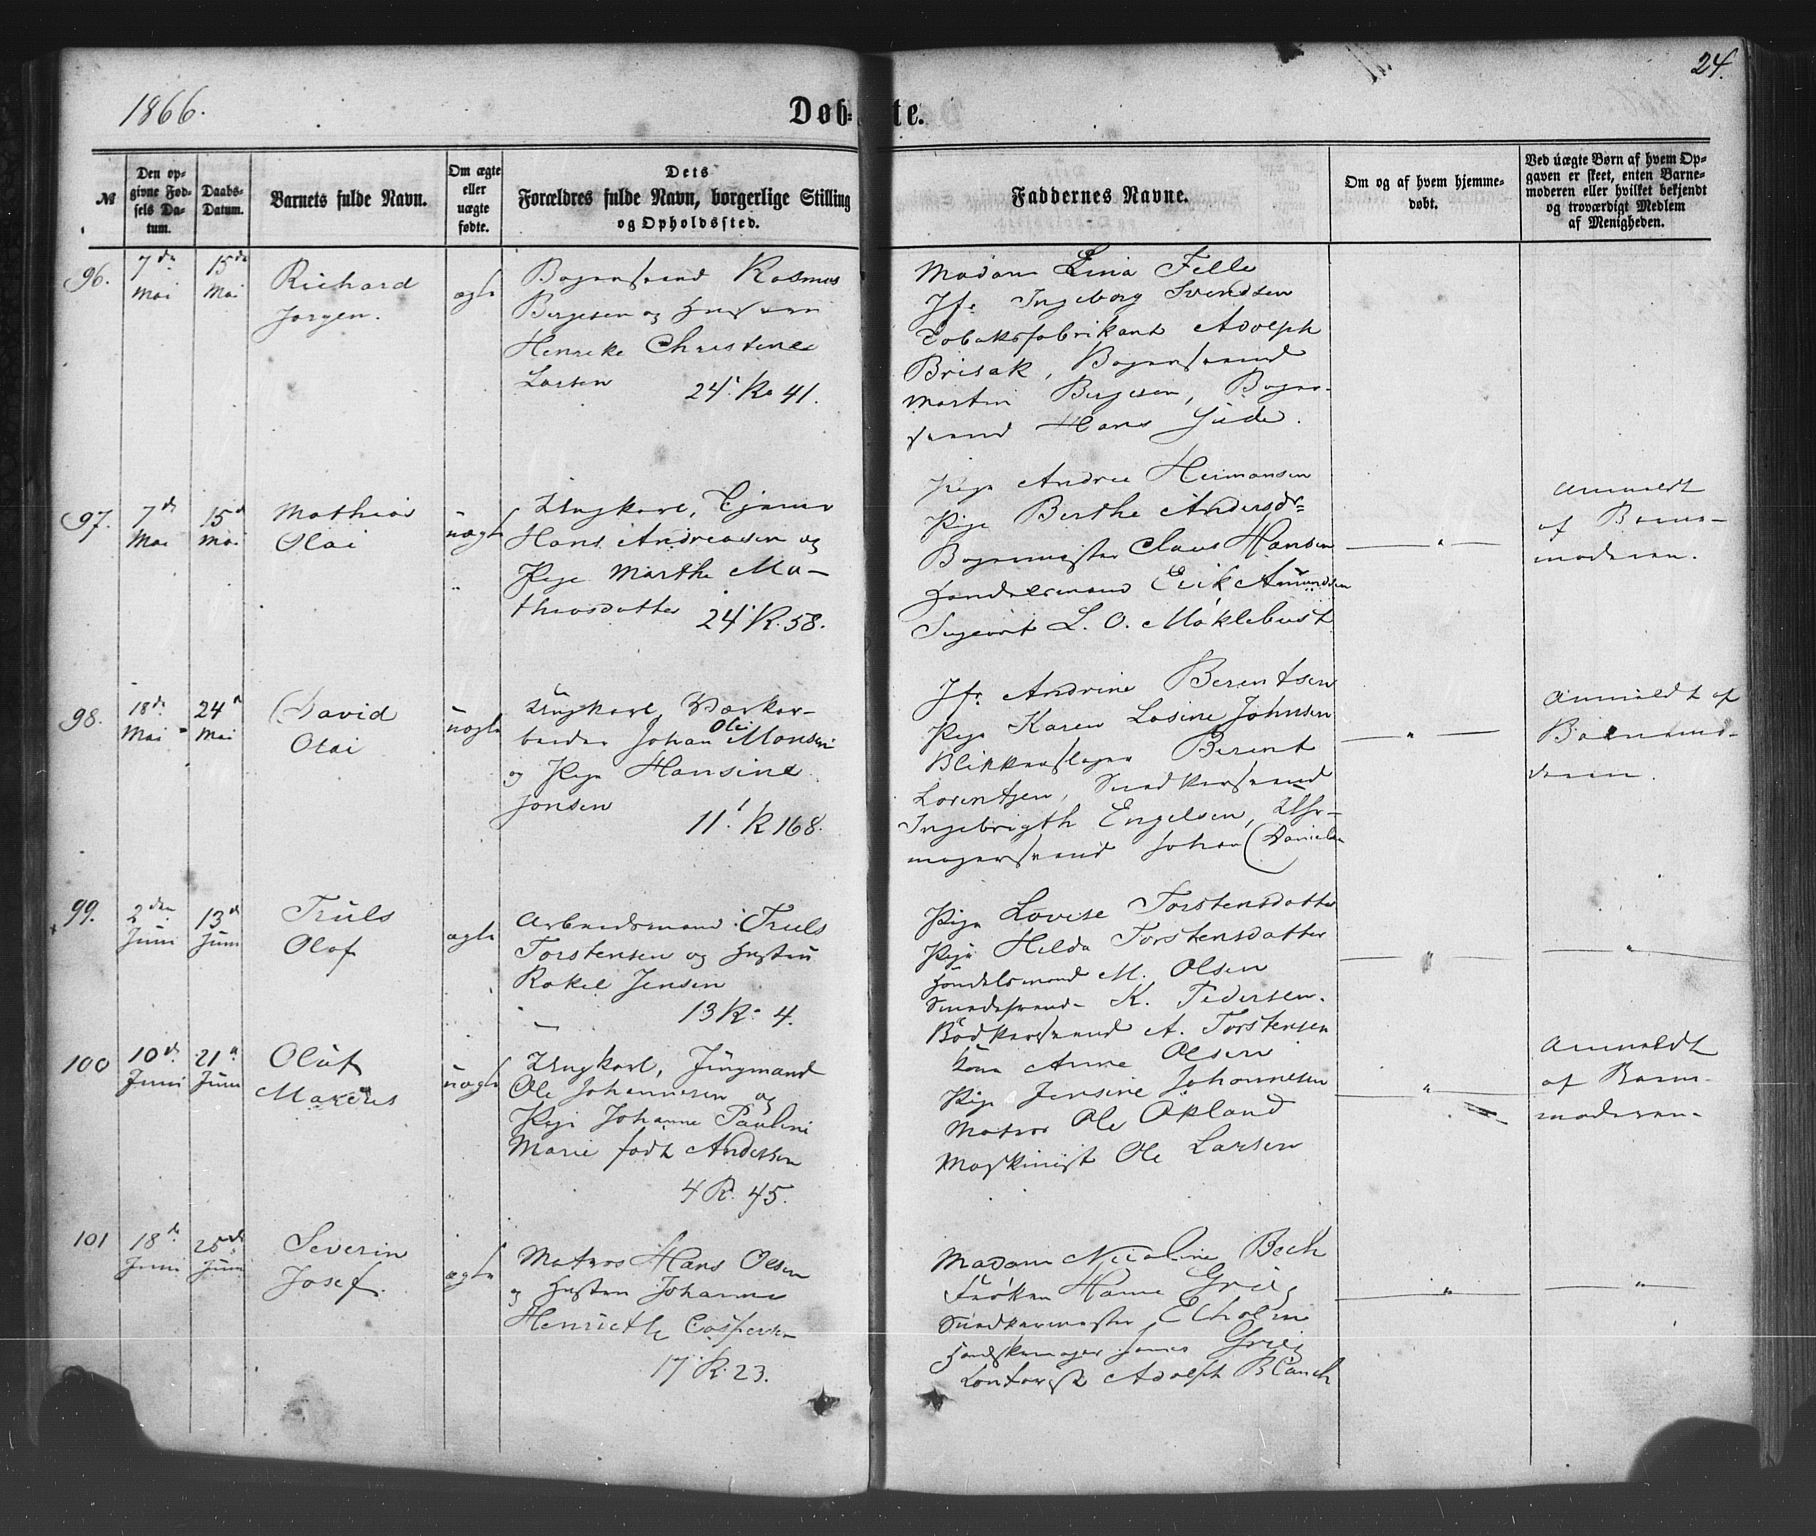 1866.
Døb- te.
24.
№
Den op-
givne Fød-
sels Da-
tum.
Daabs-
Datum.
Barnets fulde Navn.
Om ægte
eller
uægte
fødte.
Dets
Forældres fulde Navn, borgerlige Stilling
og Opholdssted.
Faddernes Navne.
Om og af hvem hjemme-
døbt.
Ved uægte Børn af hvem Op-
gaven er skeet, enten Barne-
moderen eller hvilket bekjendt
og troværdigt Medlem
af Menigheden.
96.
7de
Mai
15de
Mai
Richard
Jørgen.
ægte
Bogersvend Rasmus
Bergesen og Hustru
Henrike Christine
Larsen 24' R. 41.
Madam Lina Felle
Jfr. Ingeborg Svendsen
Tobaksfabrikant Adolph
Brisak, Bogersvend
Martin Bergesen, Boger-
svend Hans Jude.
97.
7de
Mai
15de
Mai
Mathias
Olai
uægte
Ungkarl, Tjener
Hans Andreasen og
Pige Marthe Ma-
thiasdatter 24' R. 58.
Pige Andrea Hermansen
Pige Berthe Andersdr
Bogermester Claus Hansen
Handelsmand Erik Amundsen
L. O. Møklebust
Anmeldt
af Barne-
moderen.
98.
18de
Mai
24de
Mai
David
Olai
uægte
Ungkarl, Værkar-
beider Johan Olai Monsen
og Pige Hansine
Jonsen
11' R 168.
Jfr. Andrine Berentsen
Pige Karen Lasine Johnsen
Blikkenslager Berent
Lorentzen, Snedkersvend
Ingebrigth Engelsen, Uhr-
magersvend Johan Danielsen
Anmeldt af
Barnemo-
deren.
99.
2den
Juni
13de
Juni
Truls
Olaf
ægte
Arbeidsmand Truls
Torstensen og Hustru
Rakel Jensen
13 R. 4.
Pige Lovise Torstensdatter
Pige Hilda Torstensdatter
Handelsmand M. Olsen
Smedesvend K. Pedersen.
Bødkersvend A. Torstensen
100
10de
Juni
21de
Juni
Oluf
Marcus
uægte
Ungkarl, Jungmand
Ole Johannesen og
Pige Johanne Pauline
Marie født Andersen
4 R. 45.
Kone Anne Olsen
Pige Jensine Johannesen
Matros Ole Økland
Maskinist Ole Larsen
Anmeldt
af Barne-
moderen.
101
18de
Juni
25de
Juni
Severin
Josef.
ægte
Matros Hans Olsen
og Hustru Johanne
Henriette Caspersen
17 R. 23.
Madam Nicoline Bech
Frøken Hanne Grieg
Snedkermester Ekholm
Handskemager James Grieg
Contorist Adolph Blauch